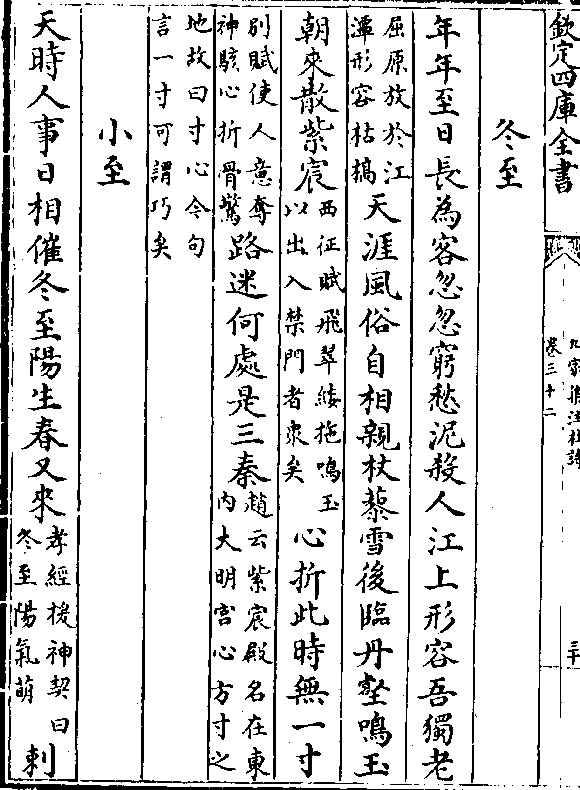 欽定四庫全書
九家集注杜詩
卷三十二
三十
冬至
年年至日長為客忽忽窮愁泥殺人江上形容吾獨老
屈原放於江
潭形容枯槁
天涯風俗自相親杖藜雪後臨丹壑鳴玉
朝來散紫宸
西征賦飛翠緌拖鳴玉
以出入禁門者衆矣
心折此時無一寸
别賦使人意奪
神駭心折骨驚
路迷何處是三秦
趙云紫宸殿名在東
内大明宫心方寸之
地故曰寸心今句
言一寸可謂巧矣
小至
天時人事日相催冬至陽生春又來
孝經援神契曰
冬至陽氣萌
刺